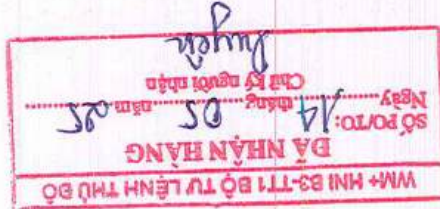 WM+ HNI B3-TT1 BỘ TƯ LỆNH THỦ ĐÔ
ĐÃ NHẬN HÀNG
SỐ PO/TO:
Ngày 14 tháng 05 năm 25
Chữ ký người nhận